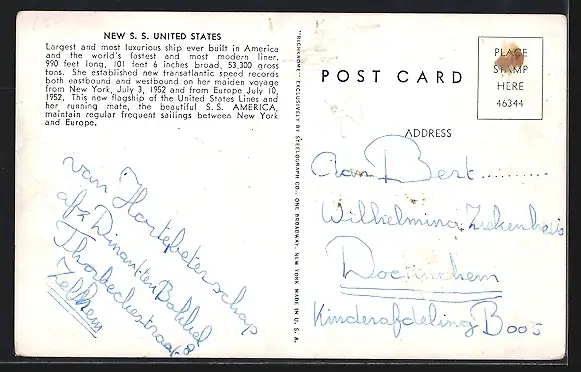 NEW S. S. UNITED STATES
Largest and most luxurious ship ever built in America
and the world's fastest and most modern liner.
990 feet long, 101 feet 6 inches broad, 53,300 gross
tons. She established new transatlantic speed records
both eastbound and westbound on her maiden voyage
from New York, July 3, 1952 and from Europe July 10,
1952. This new flagship of the United States Lines and
her running mate, the beautiful S. S. AMERICA,
maintain regular frequent sailings between New York
and Europe.
van Hartebeterschap
afz Dinant ten Bokkel
Thorbeckestraat 8
Zelhem
"RICHROME" EXCLUSIVELY BY STEELOGRAPH CO., ONE BROADWAY, NEW YORK MADE IN U. S. A.
POST CARD
PLACE
STAMP
HERE
46344
ADDRESS
Aan Bert..........
Wilhelmina Ziekenhuis
Doetinchem
Kinderafdeling B 005